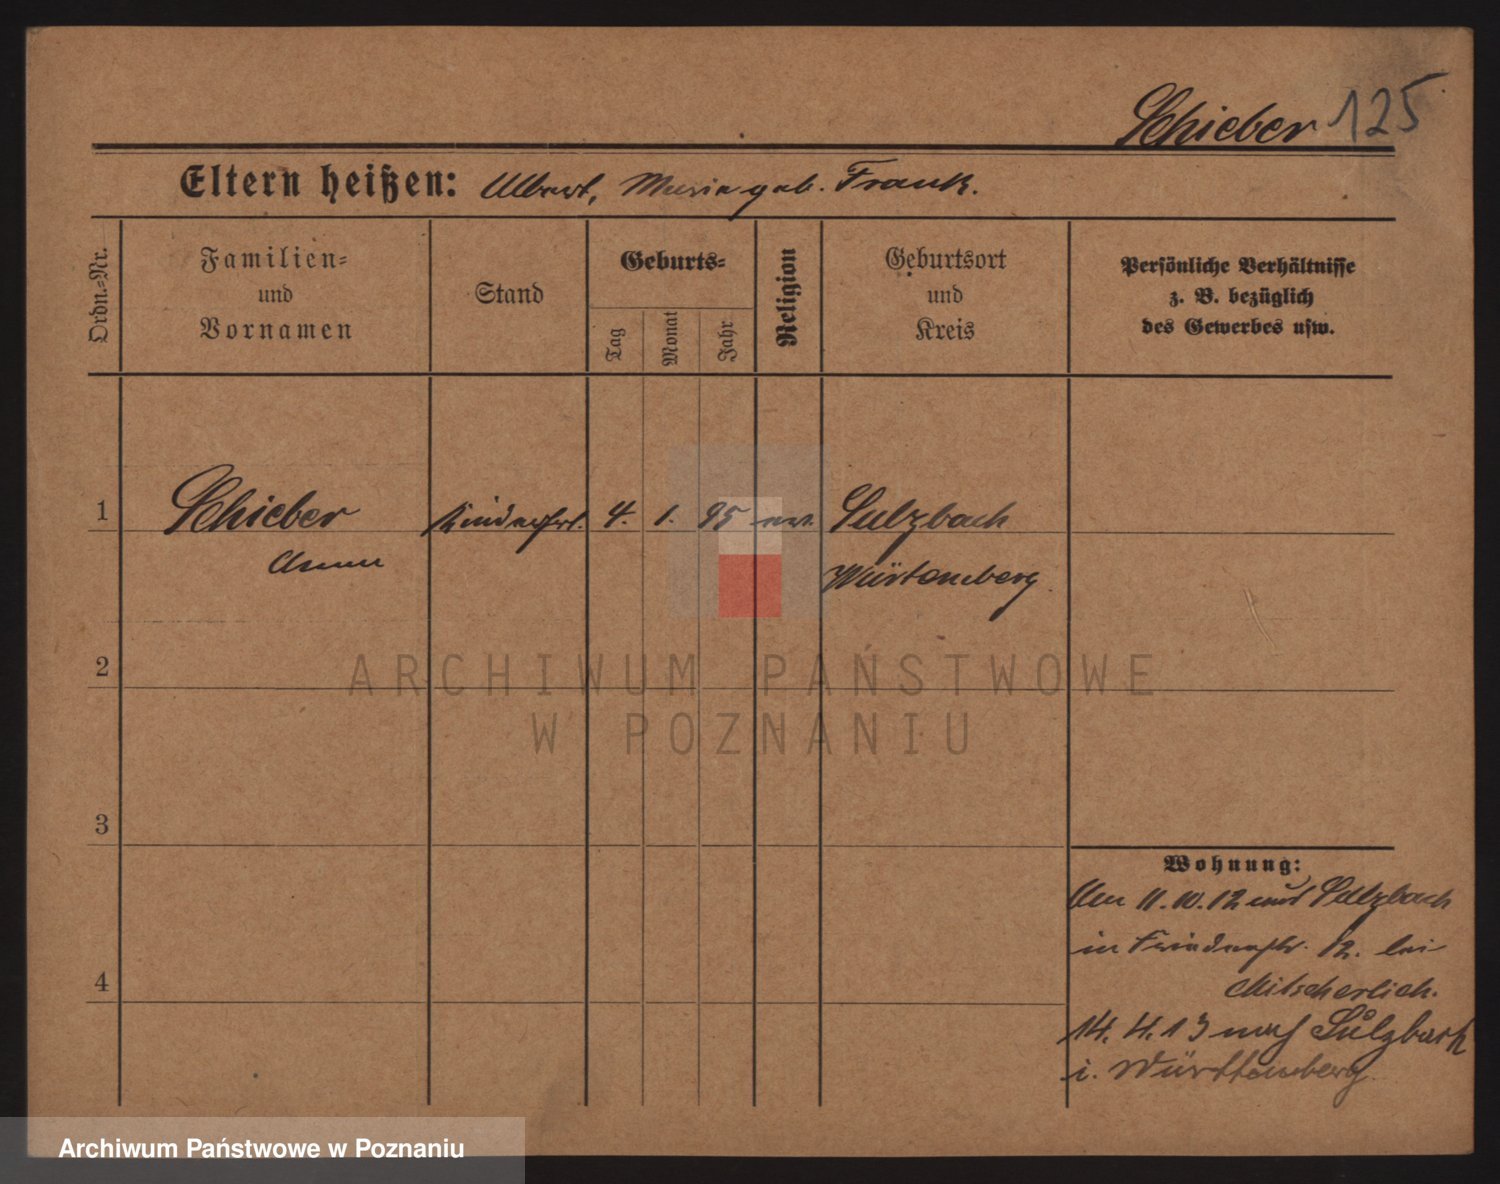 Schieber 125
Eltern heißen: Albert, Maria geb. Frank.
Ordn.-Nr.
Familien-
und
Vornamen
Stand
Geburts-
Tag
Monat
Jahr
Religion
Geburtsort
und
Kreis
Persönliche Verhältnisse
z. B. bezüglich
des Gewerbes usw.
1 Schieber 4. 1. 95 ev. Sulzbach
Anna
Würtemberg
2
3
4
Wohnung:
11.10.12 aus Sulzbach
in Friedenstr. 12. bei
Mitscherlich.
14. 4. 13 nach Sulzbach
i. Württemberg.
ARCHIWUM PAŃSTWOWE
W POZNANIU
Archiwum Państwowe w Poznaniu